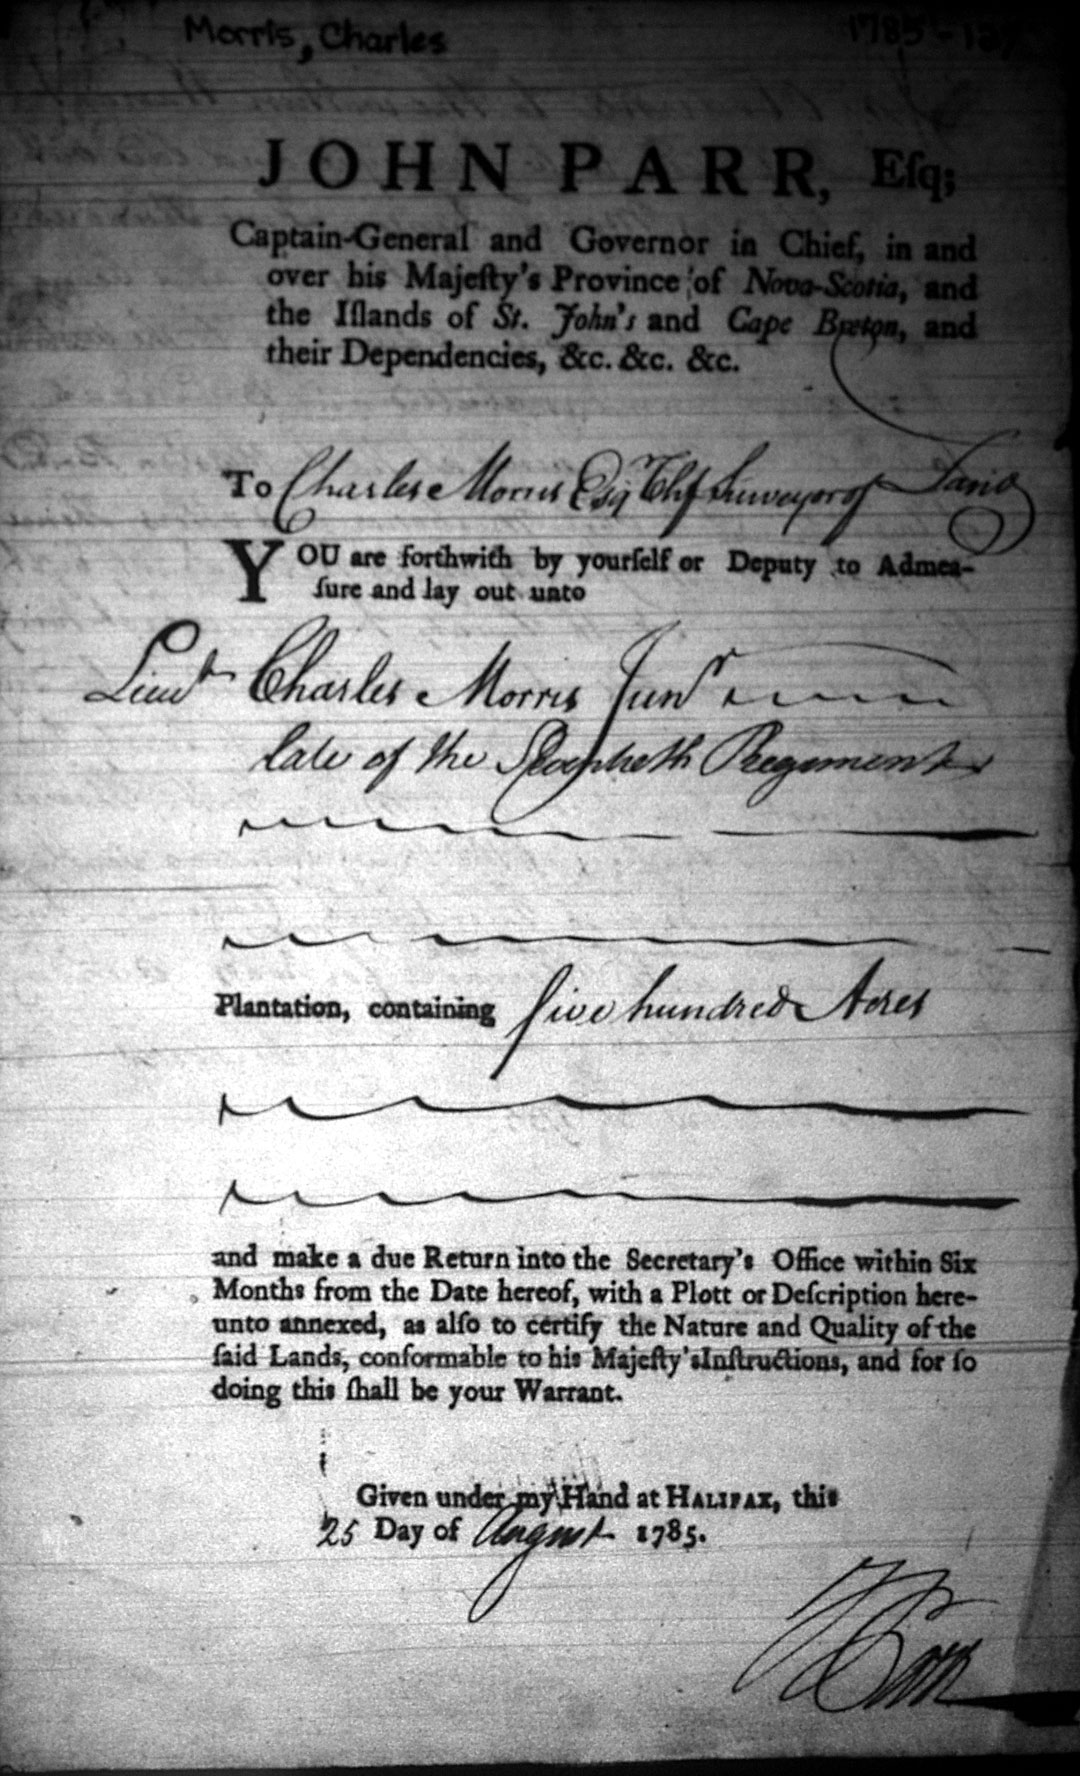 Morris, Charles
1785
JOHN PARR, Eſq;
Captain-General and Governor in Chief, in and
over his Majeſty's Province of Nova-Scotia, and
the Iſlands of St. John's and Cape Breton, and
their Dependencies, &c. &c. &c.
To Charles Morris Esqr Chf Surveyor of Land
YOU are forthwith by yourſelf or Deputy to Admea-
ſure and lay out unto
Lieut Charles Morris Junr
late of the Regiment
Plantation, containing five hundred Acres
and make a due Return into the Secretary's Office within Six
Months from the Date hereof, with a Plott or Deſcription here-
unto annexed, as alſo to certify the Nature and Quality of the
ſaid Lands, conformable to his Majeſty's Inſtructions, and for ſo
doing this ſhall be your Warrant.
Given under my Hand at HALIFAX, this
25 Day of August 1785.
J Parr